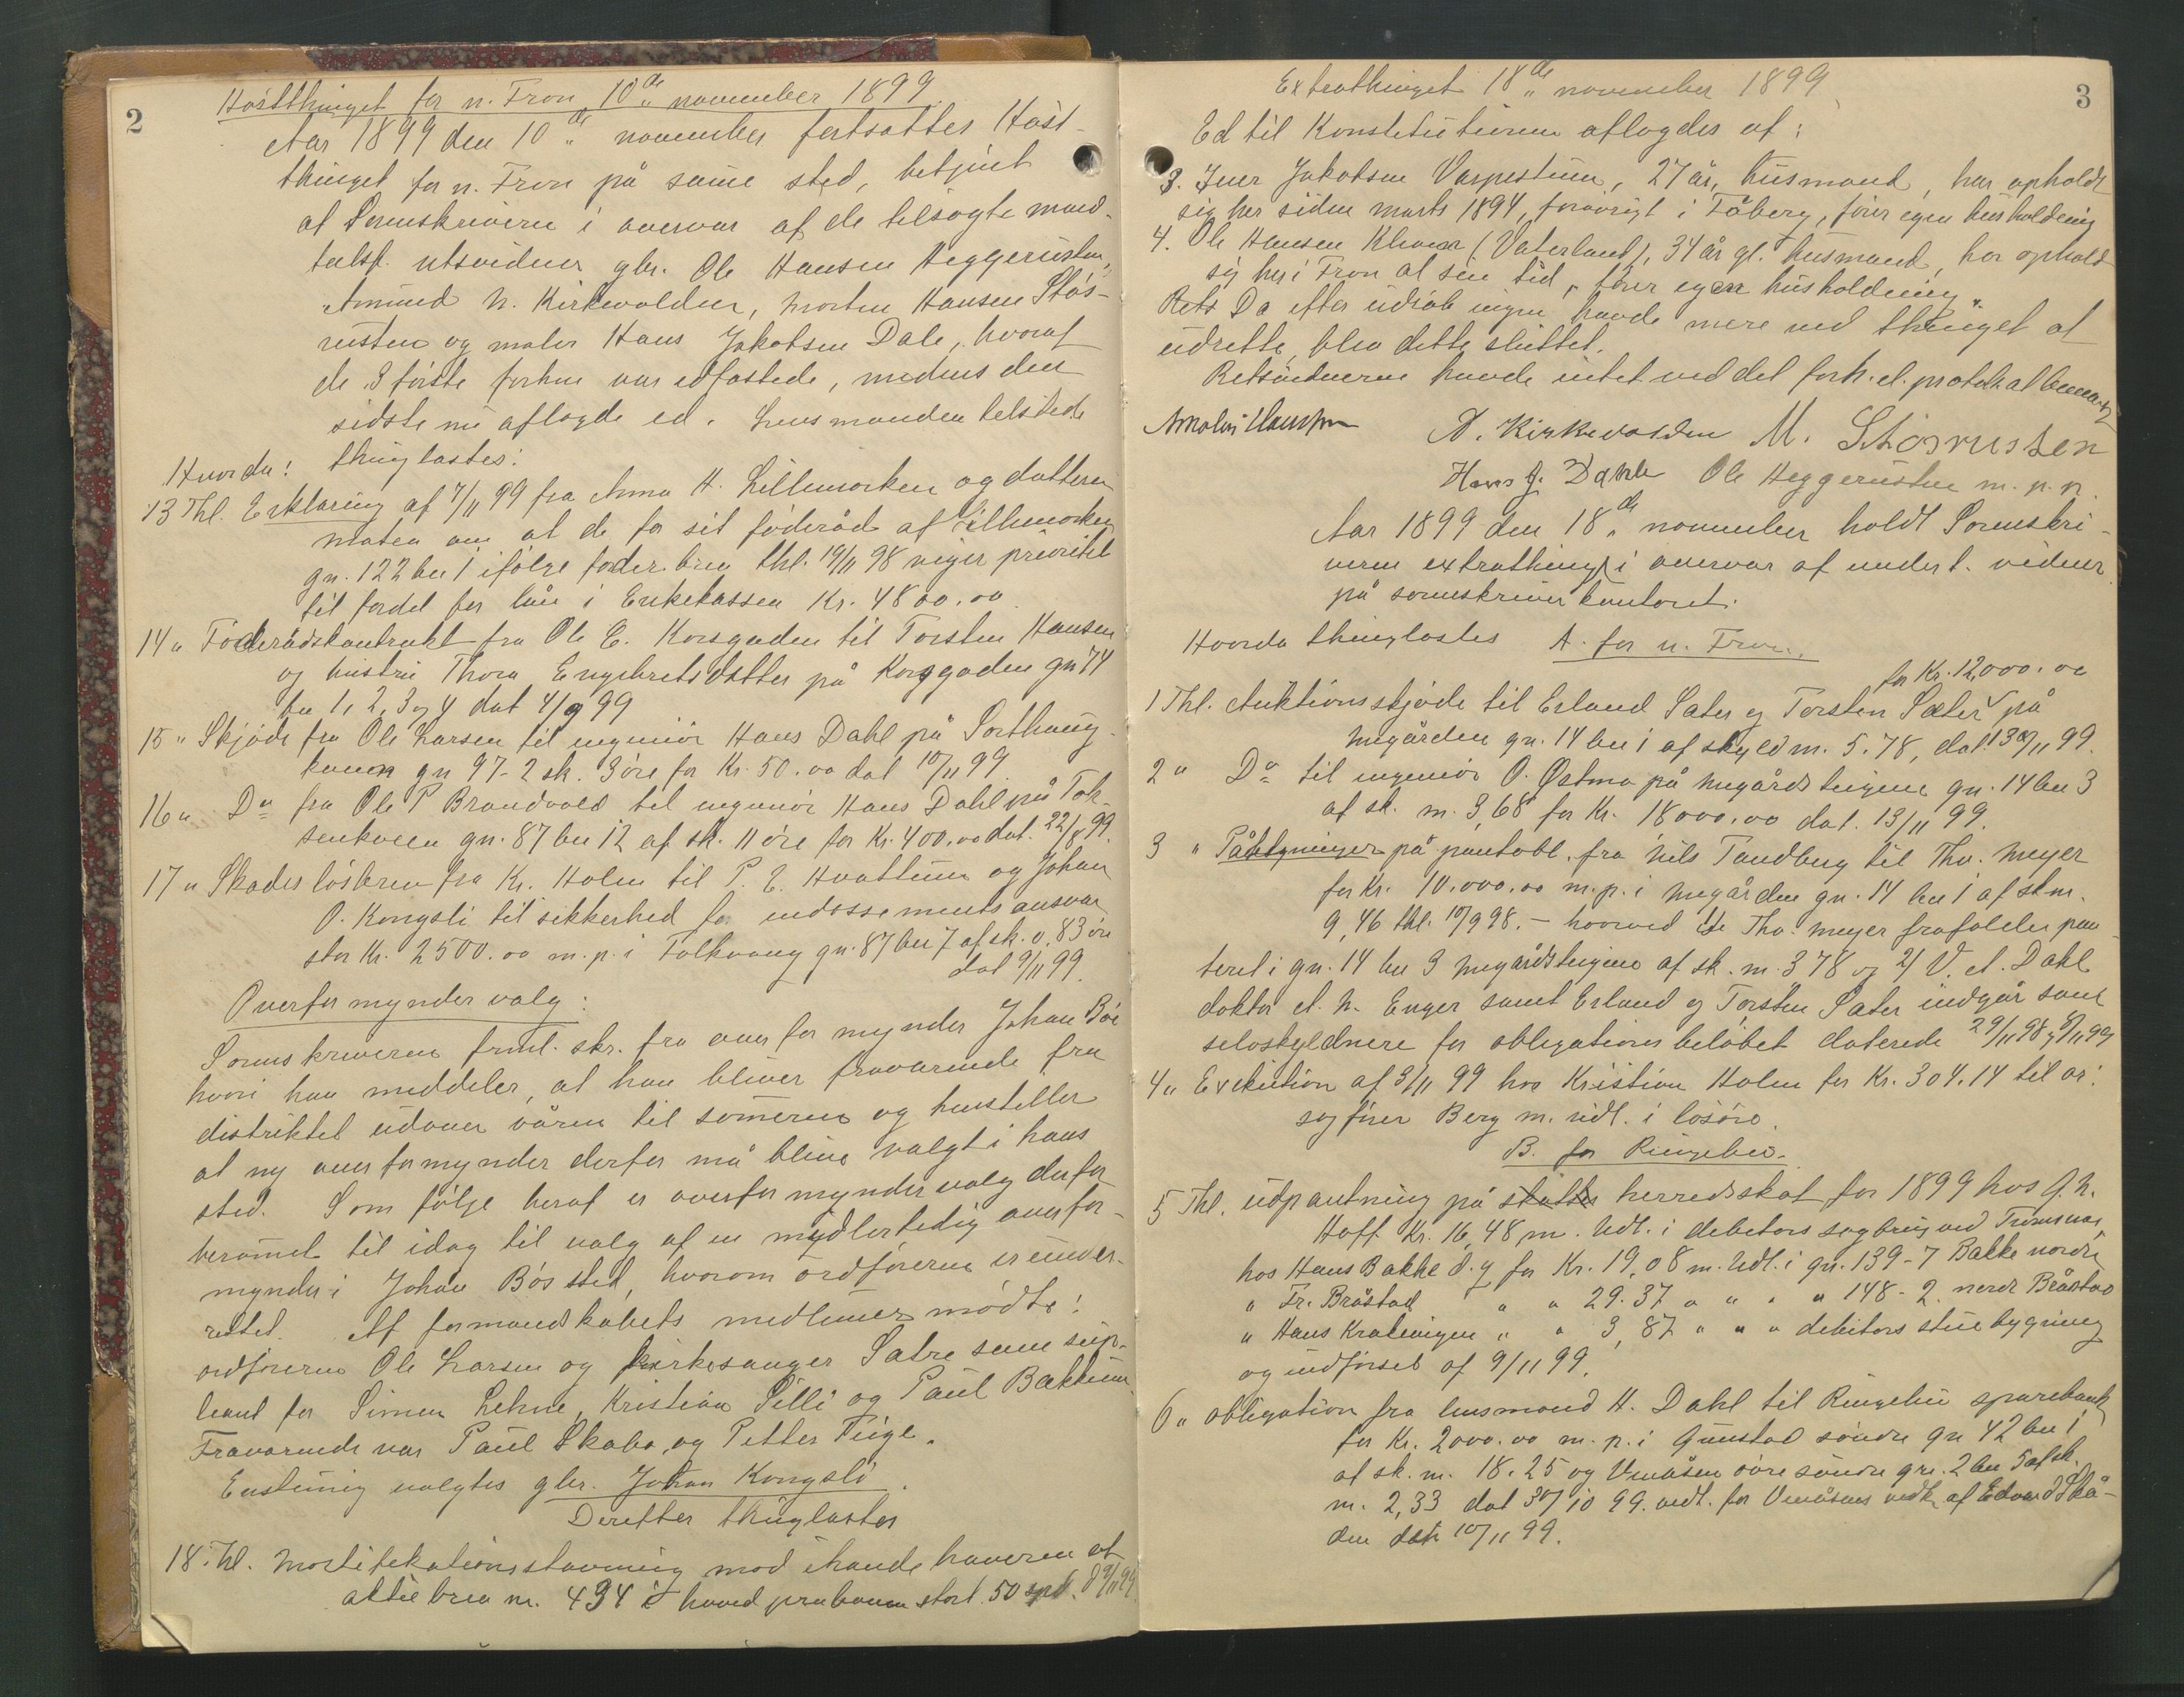 2
Høstthinget for n. Fron 10de november 1899.
Aar 1899 den 10de november fortsattes Høst-
thinget for n. Fron på samme sted, betjent
af Sorenskriveren i overvær af de tilsagte mand-
talsf. retsvidner gbr. Ole Hansen Heggerusten,
Amund N. Kirkevolden, Morten Hansen Stös-
rusten og maler Hans Jakobsen Dale, hvoraf
de 3 förste forhen var edfæstede, medens den
sidste nu aflagde ed. Lensmanden tilstede
Hvorda: thinglæstes:
13 Thl. Erklæring af 7/11 99 fra Anna H. Lillemorken og datteren
om at de for sit föderåd af Lillemorken
gn. 122 bn 1 ifölge föder. brev thl. 19/11 98 viger prioritet
til fordel for lån i Enkekassen Kr. 4800.00
14 " Föderådskontrakt fra Ole E. Korsgaden til Torsten Hansen
og hustru Thora Engebretsdatter på Korsgaden gn 74
bn 1, 2, 3 og 4 dat 4/9 99
15 " Skjöde fra Ole Larsen til ingeniör Hans Dahl på Sorthaug-
kvern gn 97-2 sk. 3 öre for Kr. 50.00 dat 10/11 99
16 " Do fra Ole P Brandvold til ingeniör Hans Dahl på Tok-
senkveen gn. 87 bn 12 af sk. 11 öre for Kr. 400.00 dat. 22/8 99.
17 " Skadeslösbrev fra Kr. Holm til P. E. Hvattum og Johan
O. Kongsli til sikkerhed for endossements ansvar
stor Kr. 2500.00 m. p. i Folkvang gn. 87 bn 7 af sk. 0,83 öre
dat 9/11 99.
Overformyndervalg:
Sorenskriveren freml. skr. fra overformynder Johan Böe
hvori han meddeler, at han bliver fraværende fra
distriktet udover våren til sommeren og henstiller
at ny overformynder derfor må blive valgt i hans
sted. Som fölge heraf er overformyndervalg derfor
berammet til idag til valg af en midlertidig overfor-
mynder i Johan Bös sted, hvorom ordföreren er under-
rettet. Af formandskabets medlemmer mödte:
ordföreren Ole Larsen og kirkesanger Sætre som sup-
leant for Simen Lehne, Kristian Silli og Paul Bakkum.
Fraværende var Paul Skabo og Petter Tuge.
Enstemmig valgtes gbr. Johan Kongsli.
Derefter thinglæstes
18. Thl. Mortifikationsstævning mod ihændehaveren af
aktiebrev nr. 434 i stort. 50 spd. d 9/11 99
3
Extrathinget 18de november 1899
Ed til Konstitutionen aflagdes af:
3. Iver Jakobsen Varpestuen, 27 år, husmand, har opholdt
sig her siden marts 1894, forövrigt i Fåberg, förer egen husholdning
4. Ole Hansen Kleven (Vaterland), 34 år gl. husmand, har opholdt
sig her i Fron al sin tid, förer egen husholdning.
Rets Da efter udråb ingen havde mere ved thinget at
udrette, blev dette sluttet.
Retsvidnerne havde intet ved det forh. el. protok. at bemærke
A. Kirkevolden M. Stösrusten
Hans J. Dahle Ole Heggerusten m. p. p.
Aar 1899 den 18de november holdt Sorenskri-
veren extrathing i overvær af undert. vidner
på sorenskriverkontoret.
Hvorda thinglæstes A. for n. Fron.
for Kr. 12,000.00
1 Thl. Auktionsskjöde til Erland Sæter og Torsten Sæter på
Megården gn. 14 bn 1 af skyld m. 5.78, dat. 13/11 99.
2 " Do til ingeniör O. Østmo på Megårdsteigene gn. 14 bn 3
af sk. m. 3,68 for Kr. 18000.00 dat. 13/11 99.
3 " Påtegninger på pantobl. fra Nils Tandberg til Tho. Meyer
for Kr. 10.000.00 m. p. i Megården gn. 14 bn 1 af sk m.
9,46 thl. 17/9 98. — hvorved 1/ Tho. Meyer frafalder pan
teret i gn. 14 bn 3 Megårdsteigene af sk. m. 378 og 2/ V. A. Dahl
doktor A. N. Enger samt Erland og Torsten Sæter indgår som
selvskyldnere for obligationsbelöbet daterede 29/11 98 og 8/11 99
4 " Exekution af 3/11 99 hos Kristian Holm for Kr. 304.14 til or.
sagförer Berg m. udl. i lösöre.
B. for Ringebu.
5 Thl. Udpantning på herredsskat for 1899 hos G. N.
Hoff Kr. 16,48 m. Udl. i debitors sagbrug ved Tromsnæs,
hos Hans Bakke d. y for Kr. 19,08 m. Udl. i gn. 139-7 Bakke nordre
" Fr. Bråstad " " 29.37 " " " " 148-2 nordr Bråstad
" Hans Krateigen " " 3,87 " " " debitors stuebygning
og indförsel af 9/11 99.
6 " Obligation fra lensmand H. Dahl til Ringebu sparebank
for Kr. 2000.00 m. p. i Gunstad söndre gn 42 bn 1
af sk. m. 18.25 og Venåsen övre söndre gn. 2 bn 5 af sk.
m. 2,33 dat 30/10 99. vedt. for Venåsens vedk. af Edvard Skå-
den dat 10/11 99.